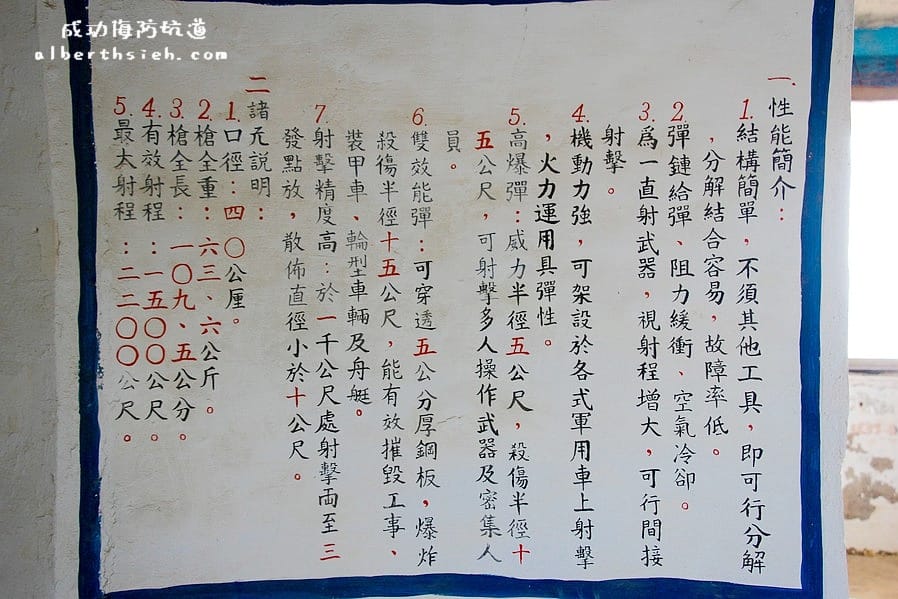 成功海防坑道
alberthsieh.com
一、性能簡介：
1.結構簡單，不須其他工具，即可行分解
，分解結合容易，故障率低。
2.彈鏈給彈、阻力緩衝、空氣冷卻。
3.為一直射武器，視射程增大，可行間接
射擊。
4.機動力強，可架設於各式軍用車上射擊
，火力運用具彈性。
5.高爆彈：威力半徑五公尺，殺傷半徑十
五公尺，可射擊多人操作武器及密集人
員。
6.雙效能彈：可穿透五公分厚鋼板，爆炸
殺傷半徑十五公尺，能有效摧毀工事、
裝甲車、輪型車輛及舟艇。
7.射擊精度高：於一千公尺處射擊両至三
發點放，散佈直徑小於十公尺。
二諸元說明：
1.口徑：四〇公厘。
2.槍全重：六三、六公斤。
3.槍全長：一〇九、五公分。
4.有效射程：一五〇〇公尺。
5.最太射程：二二〇〇公尺。